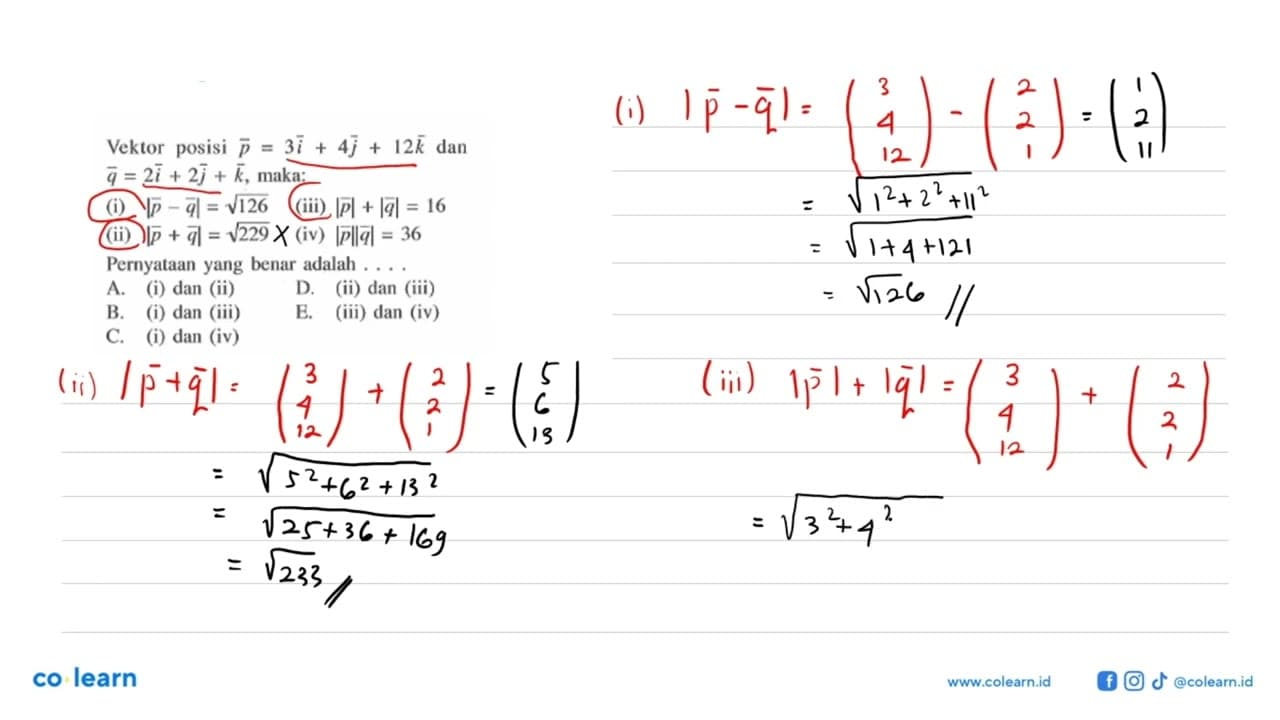 Vektor posisi p̄ = 3ī + 4j̄ + 12k̄ dan
q̄ = 2ī + 2j̄ + k̄, maka:
(i) |p̄ − q̄| = √126 (iii) |p̄| + |q̄| = 16
(ii) |p̄ + q̄| = √229 X (iv) |p̄||q̄| = 36
Pernyataan yang benar adalah . . . .
A. (i) dan (ii) D. (ii) dan (iii)
B. (i) dan (iii) E. (iii) dan (iv)
C. (i) dan (iv)
(i) |p̄ − q̄| = (3 4 12) − (2 2 1) = (1 2 11)
= √1² + 2² + 11²
= √1 + 4 + 121
= √126 //
(ii) |p̄ + q̄| = (3 4 12) + (2 2 1) = (5 6 13)
= √5² + 6² + 13²
= √25 + 36 + 169
= √233 //
(iii) |p̄| + |q̄| = (3 4 12) + (2 2 1)
= √3² + 4²
co·learn
www.colearn.id
@colearn.id